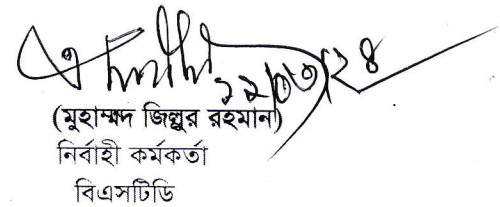 ১২/০৩/২৪
(মুহাম্মদ জিল্লুর রহমান)
নির্বাহী কর্মকর্তা
বিএসটিডি